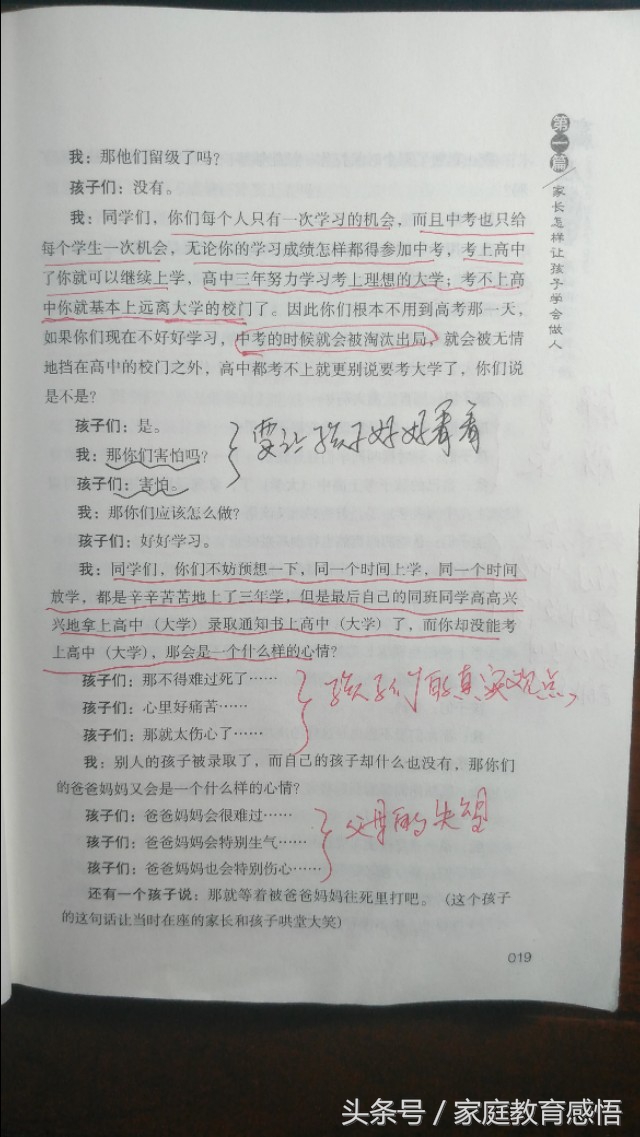 第一篇 家长怎样让孩子学会做人
我：那他们留级了吗？
孩子们：没有。
我：同学们，你们每个人只有一次学习的机会，而且中考也只给
每个学生一次机会，无论你的学习成绩怎样都得参加中考，考上高中
了你就可以继续上学，高中三年努力学习考上理想的大学；考不上高
中你就基本上远离大学的校门了。因此你们根本不用到高考那一天，
如果你们现在不好好学习，中考的时候就会被淘汰出局，就会被无情
地挡在高中的校门之外，高中都考不上就更别说要考大学了，你们说
是不是？
孩子们：是。
我：那你们害怕吗？
孩子们：害怕。
要让孩子好好看看
我：那你们应该怎么做？
孩子们：好好学习。
我：同学们，你们不妨预想一下，同一个时间上学，同一个时间
放学，都是辛辛苦苦地上了三年学，但是最后自己的同班同学高高兴
兴地拿上高中（大学）录取通知书上高中（大学）了，而你却没能考
上高中（大学），那会是一个什么样的心情？
孩子们：那不得难过死了……
孩子们：心里好痛苦……
孩子们：那就太伤心了……
孩子们的真实观点
我：别人的孩子被录取了，而自己的孩子却什么也没有，那你们
的爸爸妈妈又会是一个什么样的心情？
孩子们：爸爸妈妈会很难过……
孩子们：爸爸妈妈会特别生气……
孩子们：爸爸妈妈也会特别伤心……
父母的失望
还有一个孩子说：那就等着被爸爸妈妈往死里打吧。（这个孩子
的这句话让当时在座的家长和孩子哄堂大笑）
019
头条号／家庭教育感悟